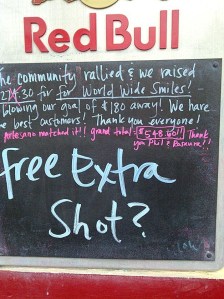 Red Bull
The community rallied & we raised
274.30 for for World Wide Smiles!
blowing our goal of $180 away! We have
the best customers! Thank you everyone!
matched it!! grand total $548.60!! Thank
you Phil &
free Extra
Shot?